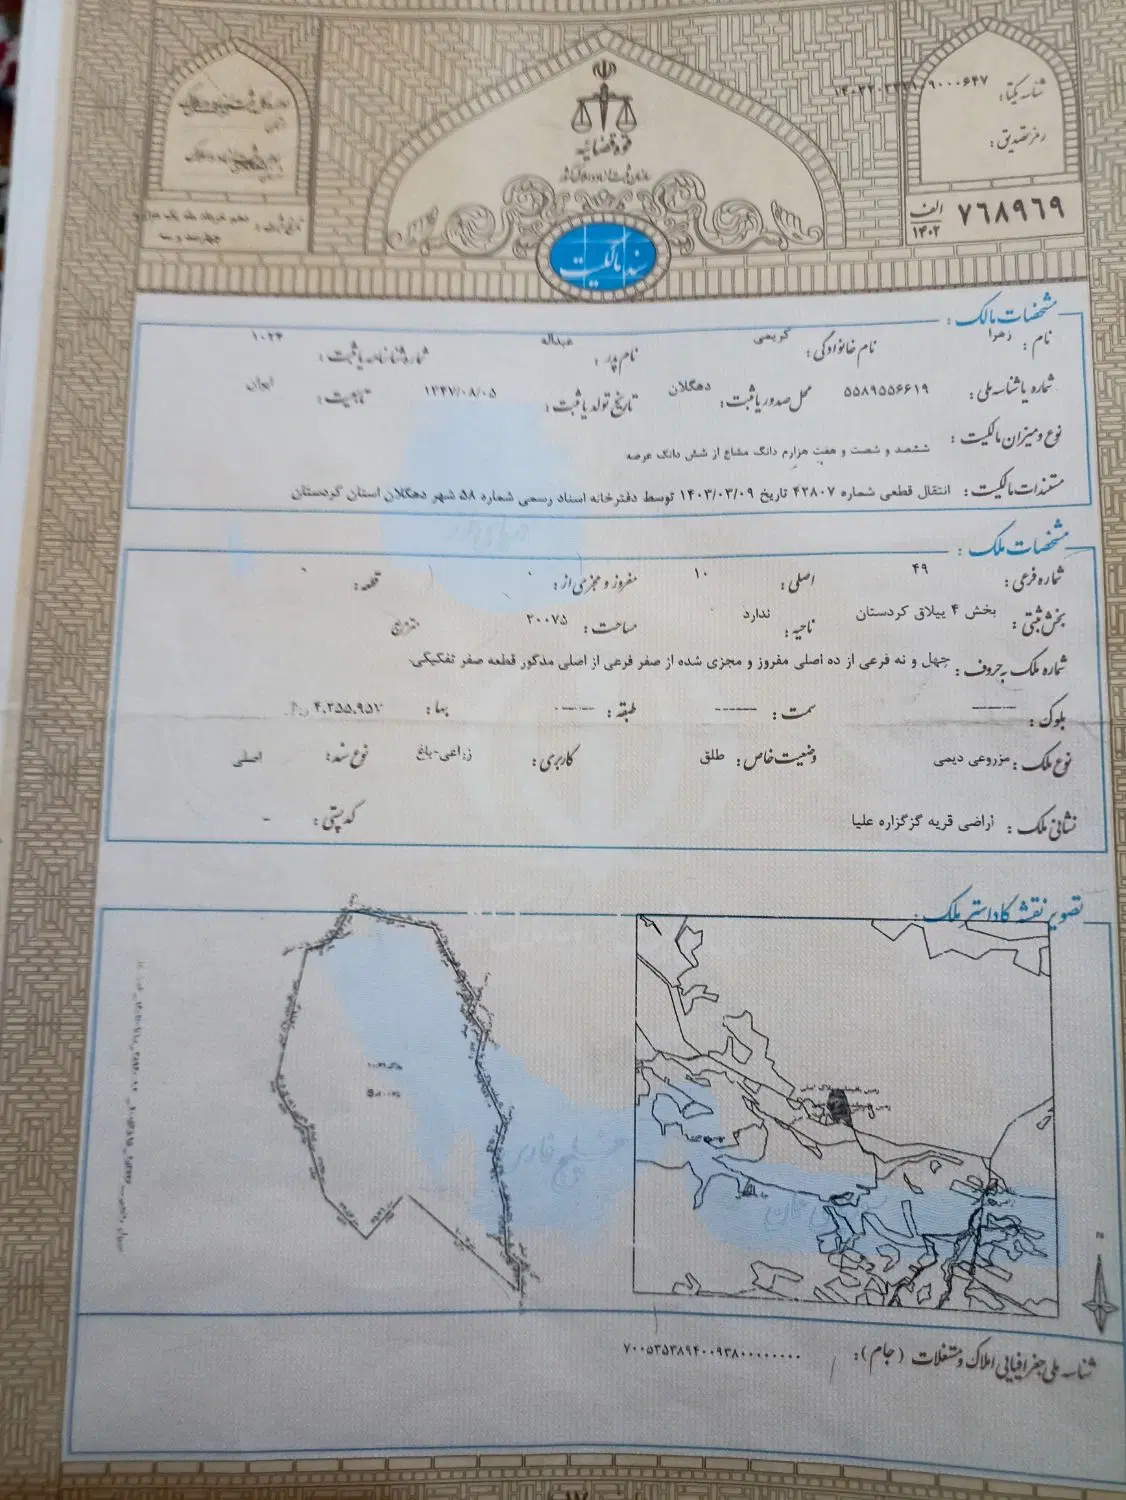 شناسه یکتا:
رمز تصدیق:
قوه قضاییه
سازمان ثبت اسناد و املاک کشور
۷۶۸۹۶۹ الف
۱۴۰۲
سند مالکیت
مشخصات مالک:
نام: زهرا نام خانوادگی: کریمی نام پدر: عبداله شماره شناسنامه یا ثبت: ۱۰۲۴
شماره یا شناسه ملی: ۵۵۸۹۵۵۶۶۱۹ محل صدور یا ثبت: دهگلان تاریخ تولد یا ثبت: ۱۳۴۷/۰۸/۰۵ تابعیت: ایران
نوع و میزان مالکیت: ششصد و شصت و هفت هزارم دانگ مشاع از شش دانگ عرصه
مستندات مالکیت: انتقال قطعی شماره ۴۲۸۰۷ تاریخ ۱۴۰۳/۰۳/۰۹ توسط دفترخانه اسناد رسمی شماره ۵۸ شهر دهگلان استان کردستان
مشخصات ملک:
شماره فرعی: ۴۹ اصلی: ۱۰ مفروز و مجزی از: ۰ قطعه: ۰
بخش ثبتی: بخش ۴ ییلاق کردستان ناحیه: ندارد مساحت: ۲۰۰۷۵ مترمربع
شماره ملک به حروف: چهل و نه فرعی از ده اصلی مفروز و مجزی شده از صفر فرعی از اصلی مذکور قطعه صفر تفکیکی.
بلوک: ------ سمت: ------ طبقه: ------ بها: ۴,۲۵۵,۹۵۷ ریال
نوع ملک: مزروعی دیمی وضعیت خاص: طلق کاربری: زراعی-باغ نوع سند: اصلی
نشانی ملک: اراضی قریه گزگزاره علیا کد پستی: -
تصویر نقشه کاداستر ملک:
خلیج فارس
شناسه ملی جغرافیایی املاک و مستغلات (جام): ۷۰۰۵۳۵۳۸۹۴۰۰۹۳۸۰۰۰۰۰۰۰۰۰